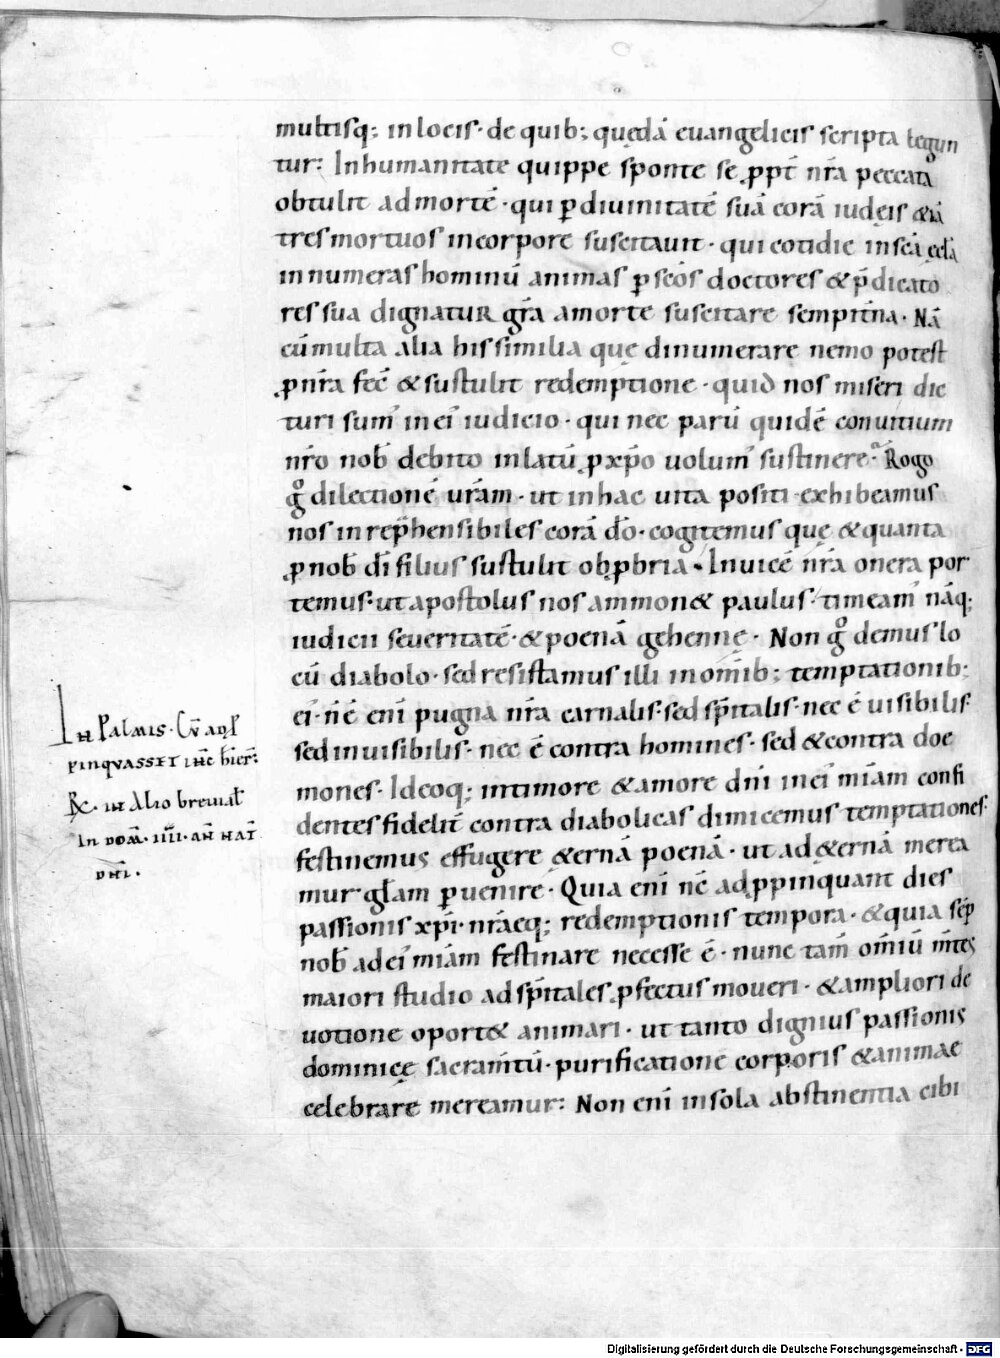 multisq; in locis · de quib; quędā euangelicis scripta legun
tur: In humanitate quippe sponte se ꝓpt̄ nr̄a peccata
obtulit ad mortē · qui ꝑ diuinitatē suā corā iudęis &iā
tres mortuos in corpore suscitauit · qui cotidie in sc̄a ęccl̄a
in numeras hominū animas ꝑ sc̄os doctores & p̄dicato
res sua dignatur gr̄a a morte suscitare sempit̄na · Nā
cū multa alia his similia quę dinumerare nemo potest
ꝓ nr̄a fec̄ & sustulit redemptione · quid nos miseri dic
turi sum' in ei' iudicio · qui nec parū quidē conuitium
nr̄o nob̄ debito inlatū ꝓ xp̄o uolum' sustinere · Rogo
gͦ dilectionē ur̄am · ut in hac uita positi exhibeamus
nos inrep̄hensibiles corā d̄o · cogitemus quę & quanta
ꝓ nob̄ d̄i filius sustulit obꝓbria · Inuicē nr̄a onera por
temus · ut apostolus nos ammon& paulus · timeam' nāq;
iudicii seueritatē · & poenā gehennę · Non gͦ demus lo
cū diabolo · sed resistamus illi in om̄ib; temptationib;
ei' · n̄ ē eni pugna nr̄a carnalis · sed sp̄italis · nec ē uisibilis ·
sed inuisibilis · nec ē contra homines · sed & contra doe
mones · Ideoq; in timore & amore dn̄i in ei' mīam confi
dentes fidelit̄ contra diabolicas dimicemus temptationes
festinemus effugere &ernā poenā · ut ad &ernā merea
mur gl̄am ꝑuenire · Quia eni nc̄ adꝓpinquant dies
passionis xp̄i · nr̄aeq; redemptionis tempora · & quia sēp
nob̄ ad ei' mīam festinare necesse ē · nunc tam̄ om̄iū m̄tes
maiori studio ad sp̄itales ꝓfectus moueri · & ampliori de
uotione oport& animari · ut tanto dignius passionis
dominicę sacram̄tū · purificatione corporis & animae
celebrare mereamur: Non eni in sola abstinentia cibi
In Palmis · Cū adp̄
pinquasset ih̄c hier:
Rc · in alio breuial̄
in dom̄ · IIII · an̄ nat̄
dn̄i ·
Digitalisierung gefördert durch die Deutsche Forschungsgemeinschaft - DFG